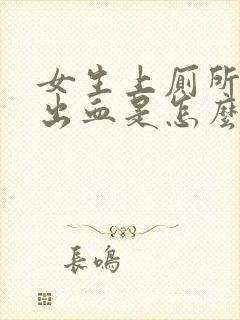 女生上厕所
出血是怎麼
長鳴